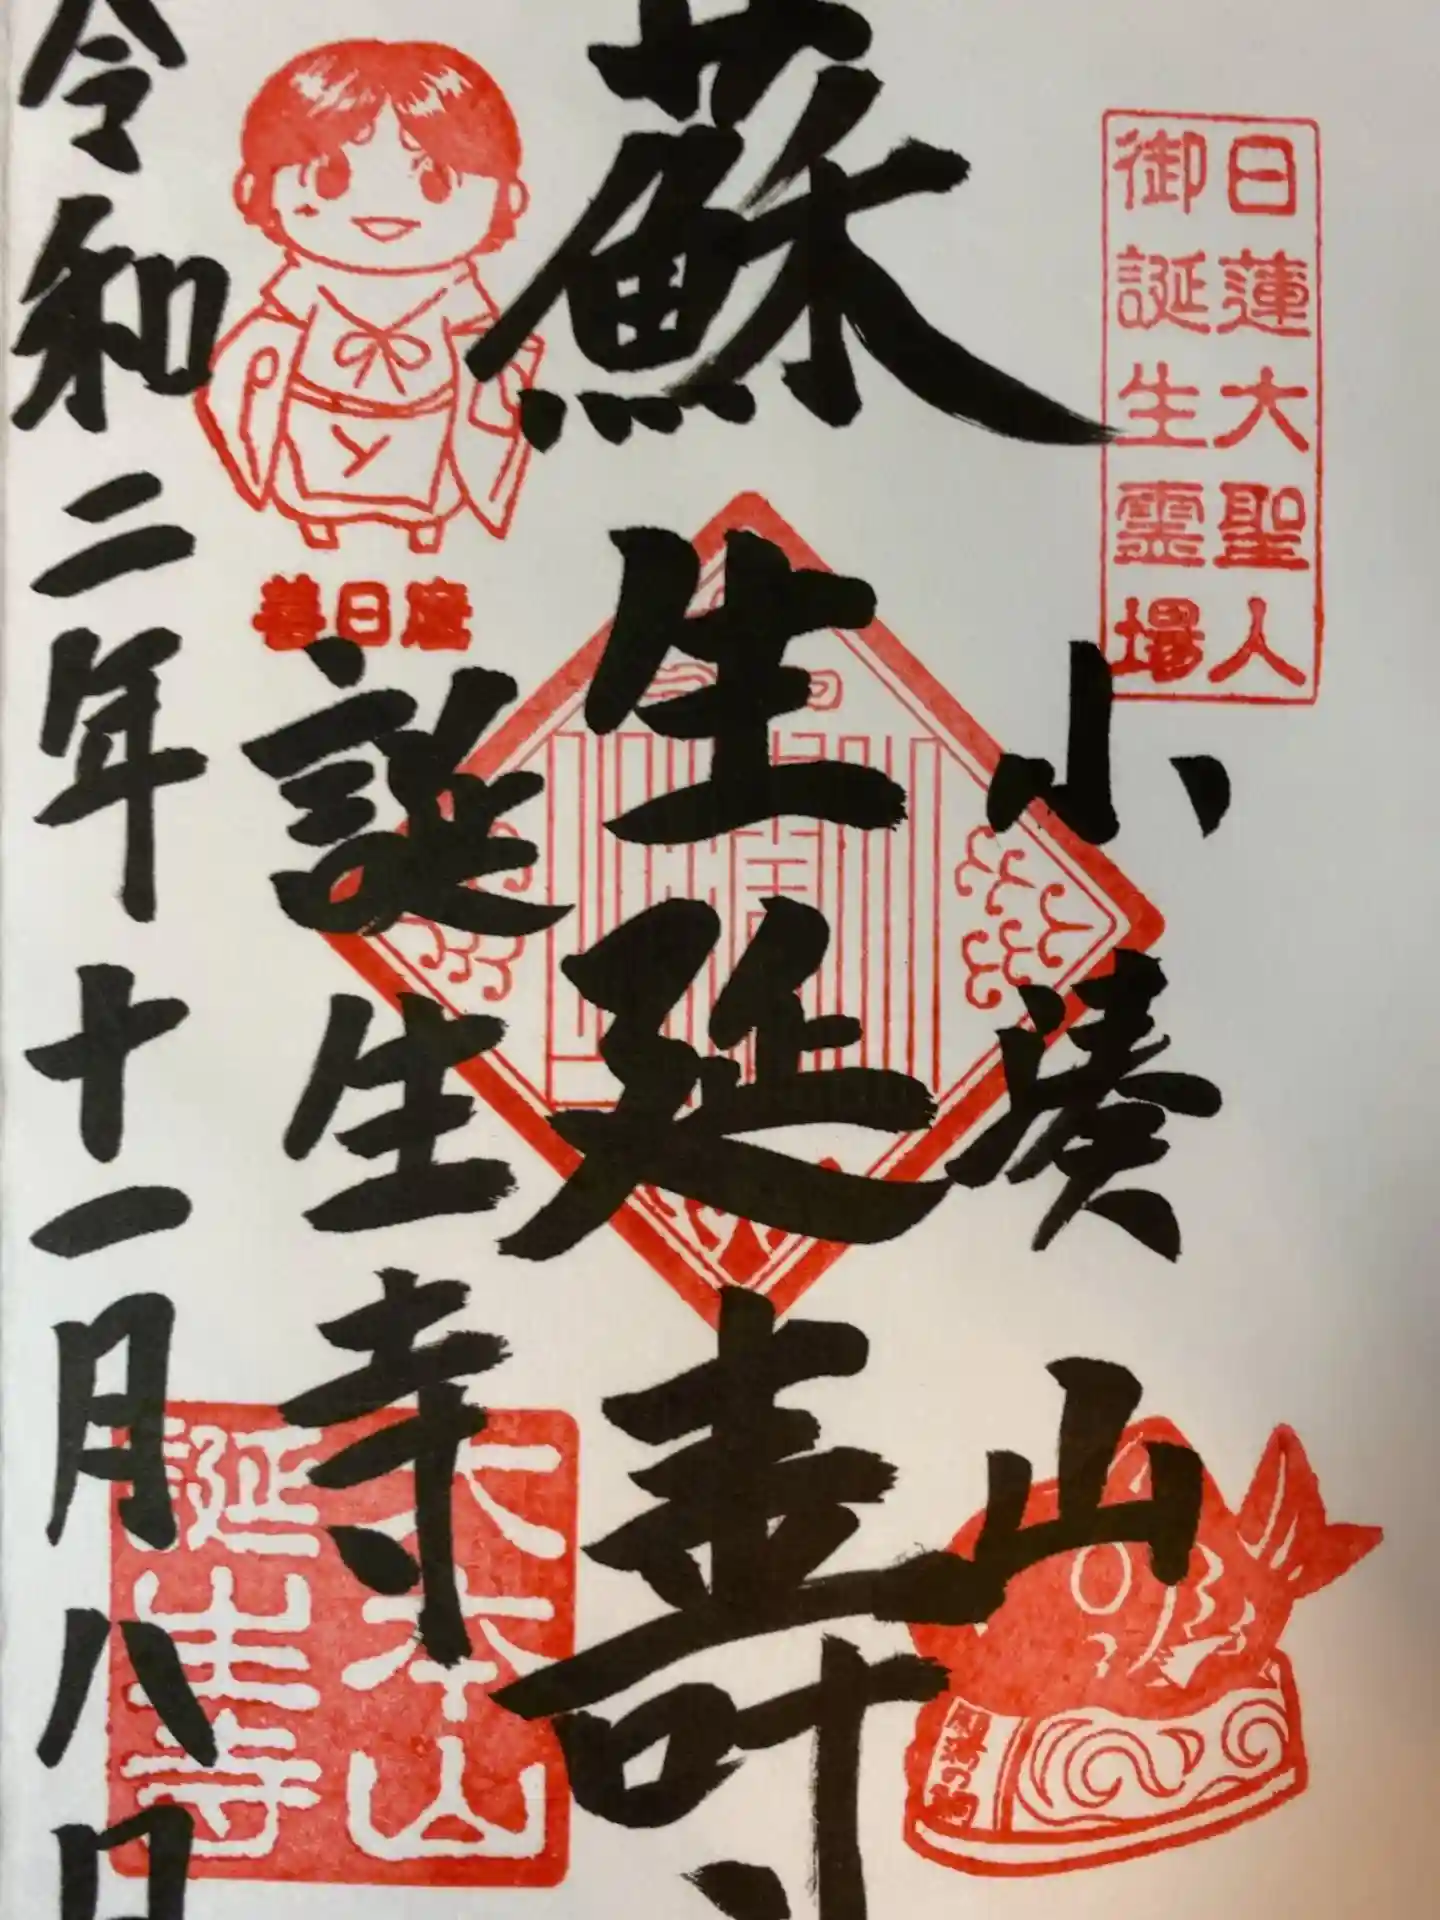 日蓮大聖人
御誕生霊場
小湊山
蘇生延壽
誕生寺
善日麿
大本山
誕生寺
令和二年十一月八日